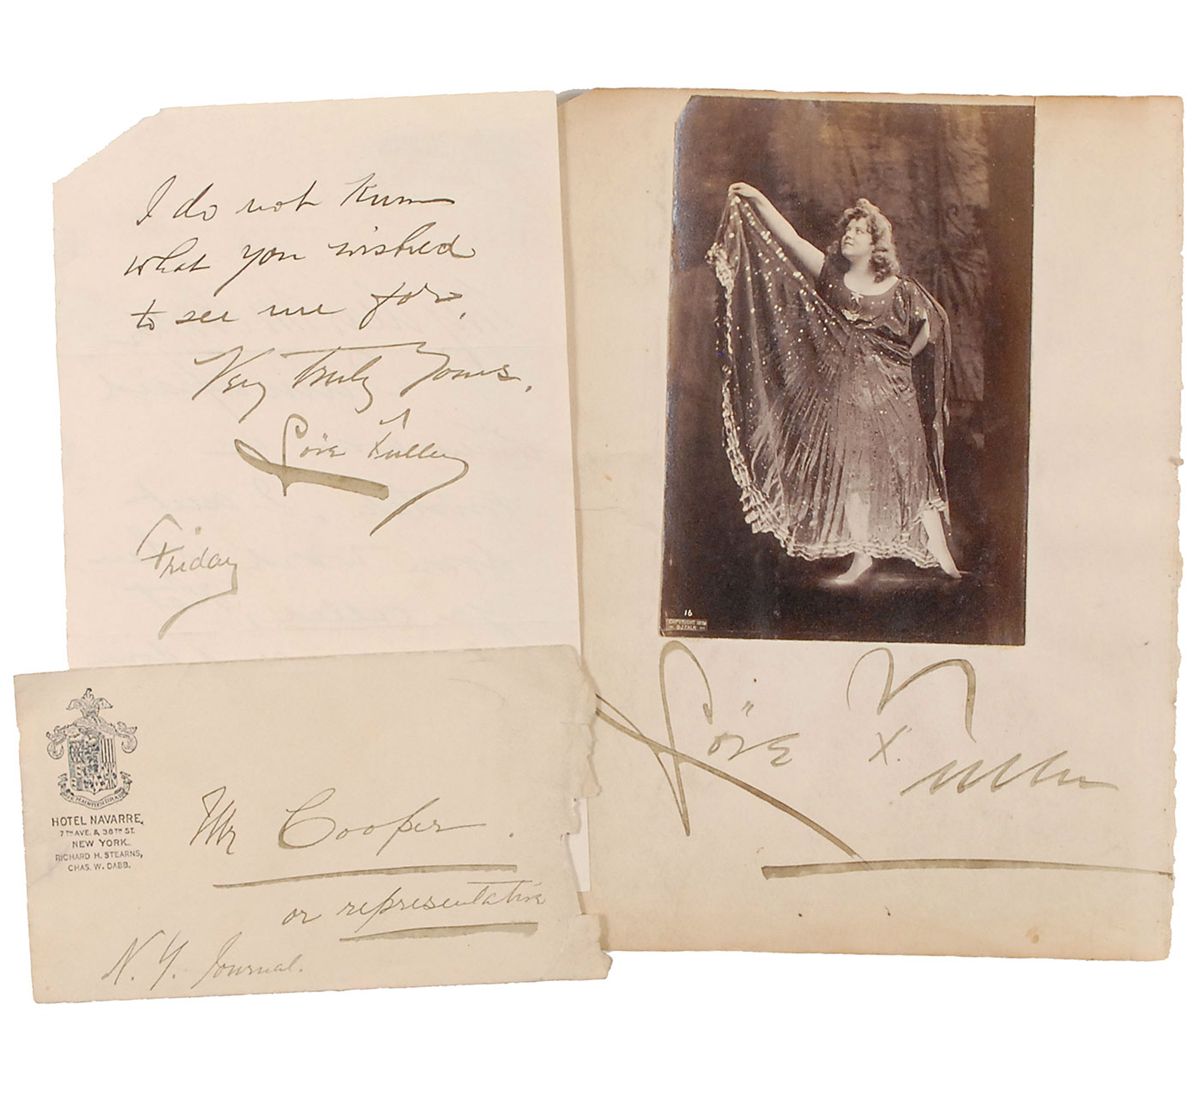 I do not know
what you wished
to see me for,
Very Truly Yours,
Loïe Fuller
Friday
16
B.J. FALK
Loïe Fuller
HOTEL NAVARRE,
7TH AVE. & 38TH ST.
NEW YORK.
RICHARD H. STEARNS,
CHAS. W. DABB.
Mr Cooper.
or representative
N. Y. Journal.